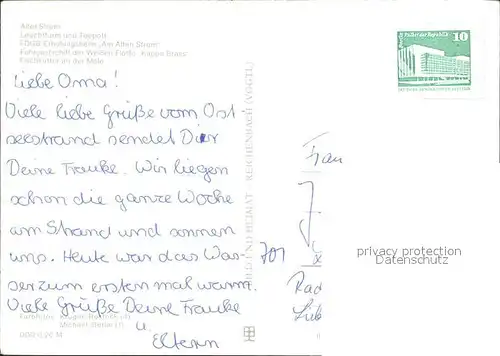 Alter Strom
Leuchtturm und Teepott
FDGB-Erholungsheim „Am Alten Strom“
Fahrgastschiff der Weißen Flotte „Kappa Brass“
an der Mole
Liebe Oma!
Viele liebe Grüße vom Ost-
seestrand sendet Dir
Deine Frauke. Wir liegen
schon die ganze Woche
am Strand und sonnen
uns. Heute war das Was-
ser zum ersten mal warm.
Viele Grüße Deine Frauke
u.
Eltern
BILD UND HEIMAT REICHENBACH (VOGTL)
10
Palast der Republik
Frau
J
701
Rad
privacy protection
Datenschutz